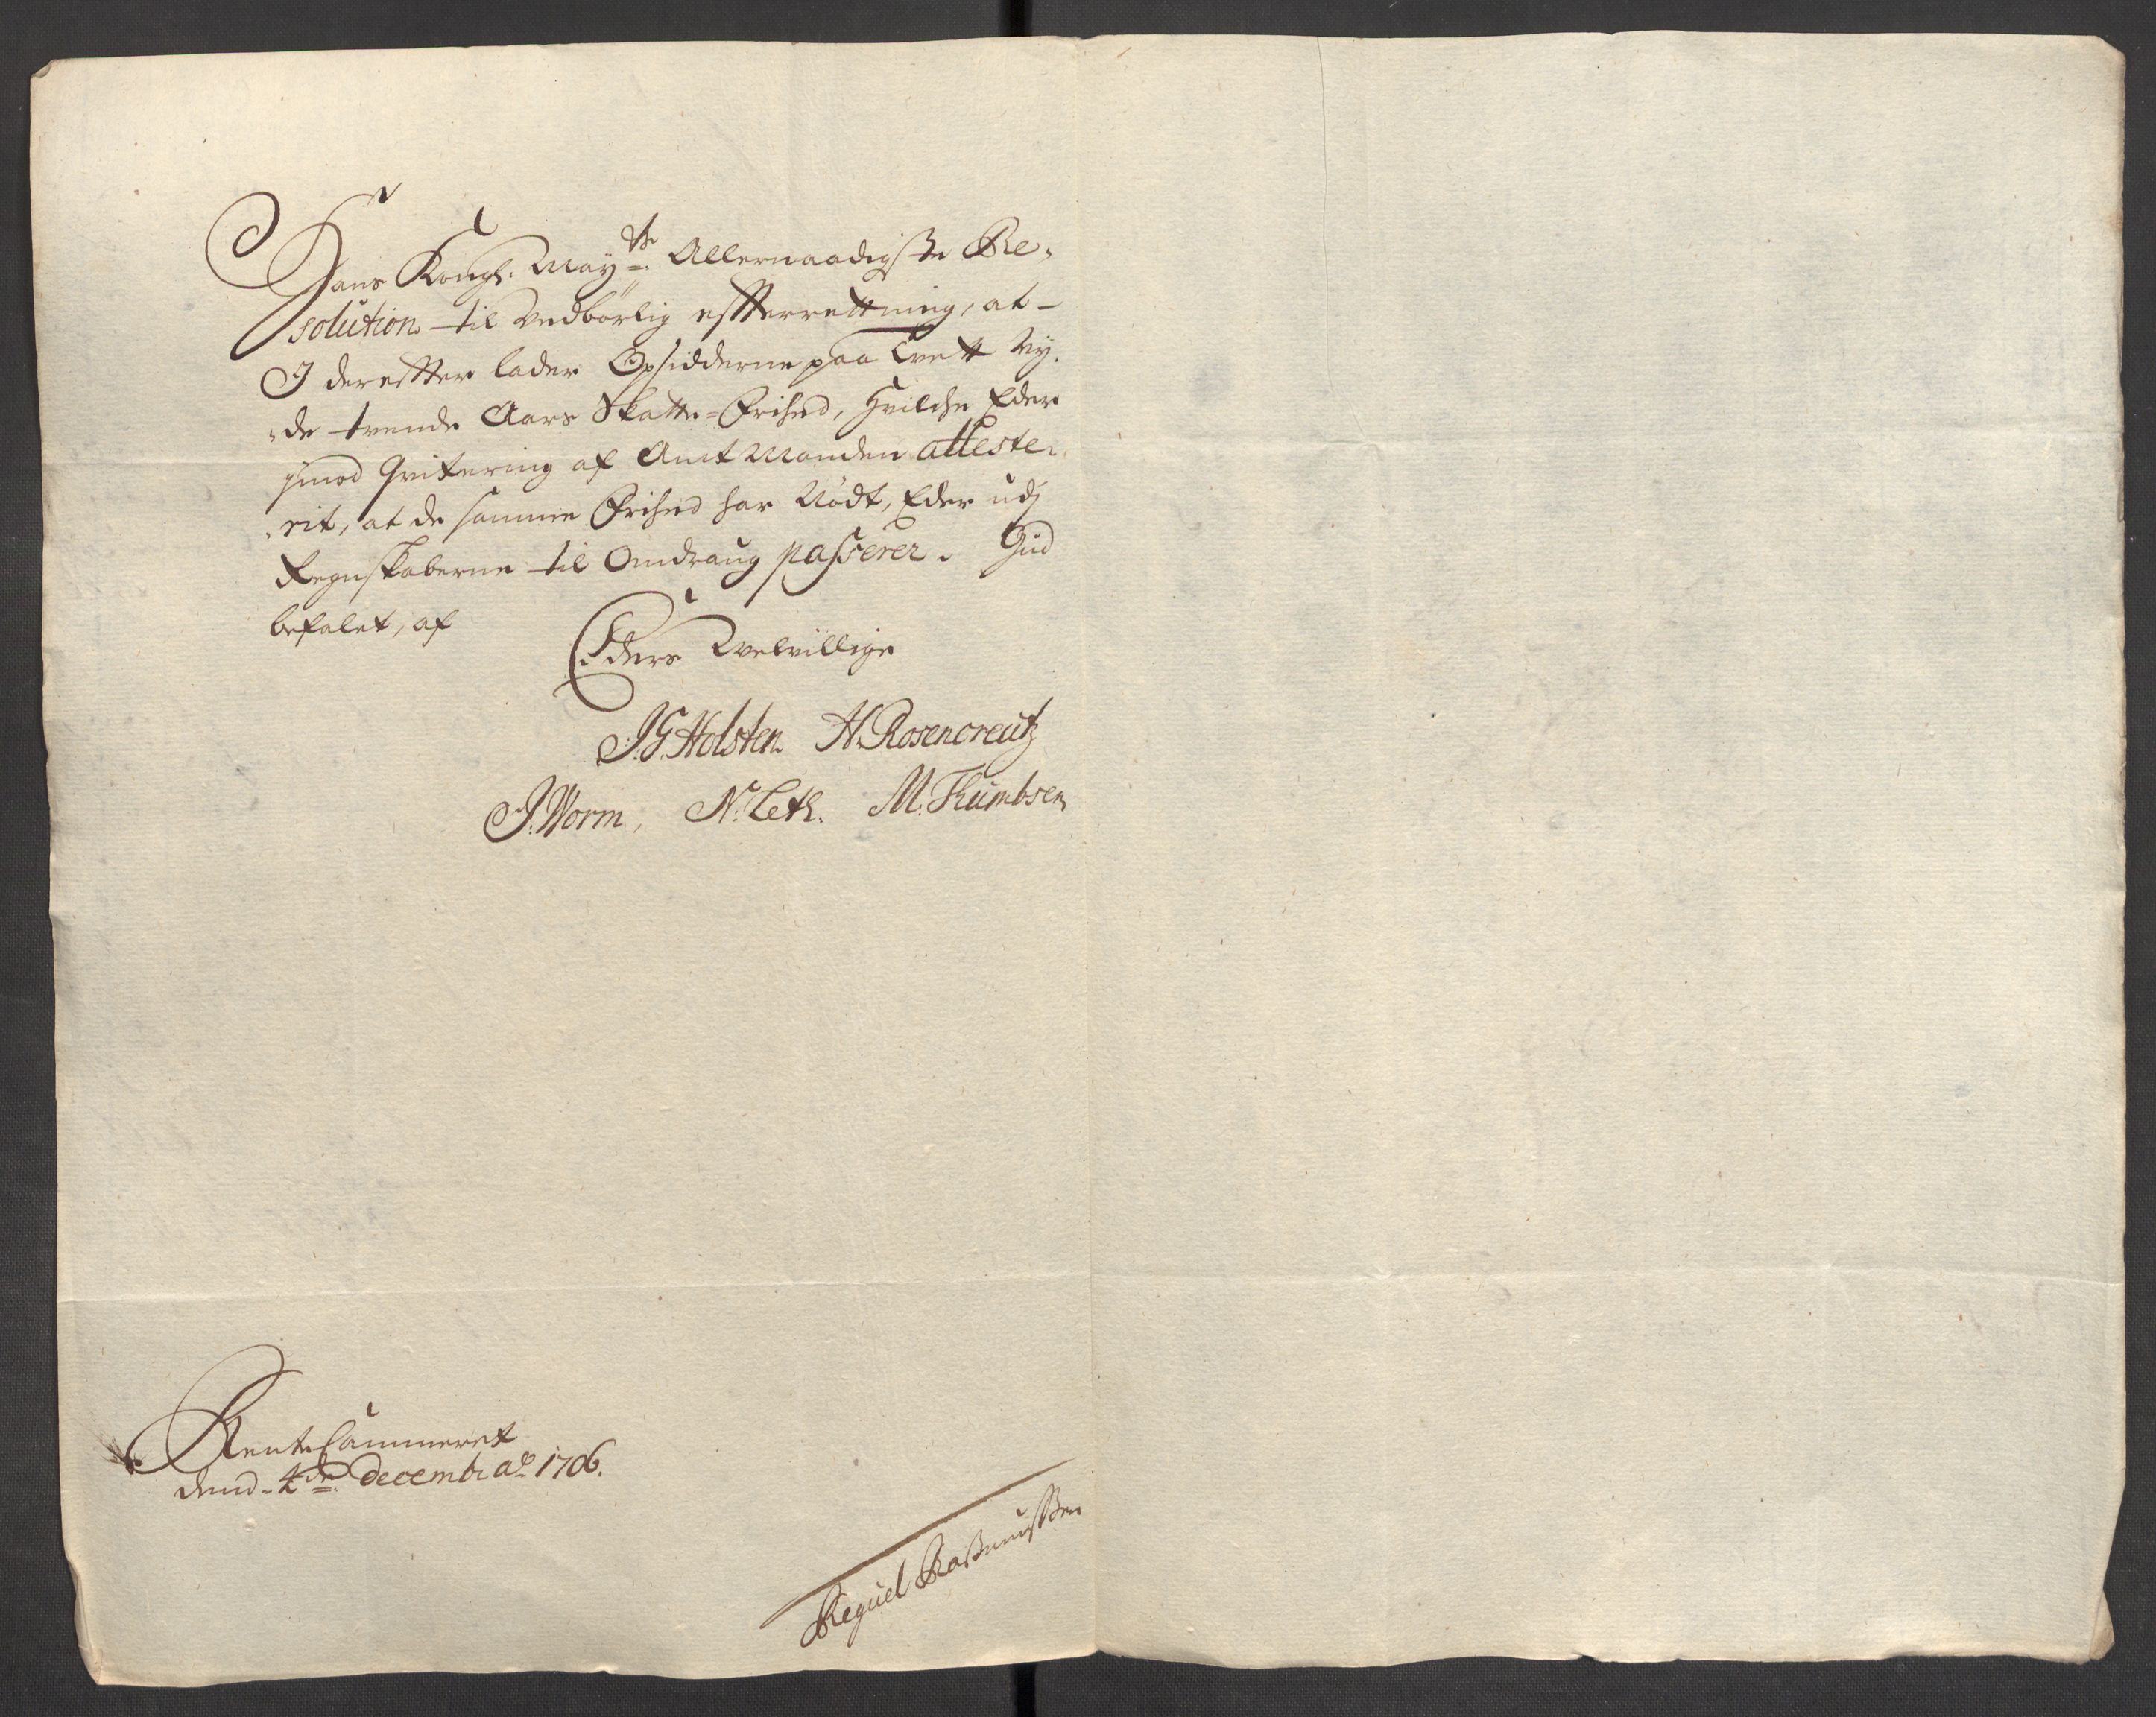 Hans Kongl. Mayts. Allernaadigste Re-
solution til vedbörlig effterrettning, at -
I derefter lader Opsidderne paa Tvett ny-
de trende Aars Skatte-Frihed, hvilche Eder
imod Qvitering af Amt Manden atteste-
rit, at de samme Frihed har Nödt, Eder udj
Regnskaberne til Omdraug passerer. Gud
befalet, af
Eders Velvillige
J.G. Holsten H. Rosencreutz
J. Worm, N. Leth. M. Thumbsen
Rente Cammeret
dend. 4de. Decembr. ao 1706.
Reguel Rasmussen